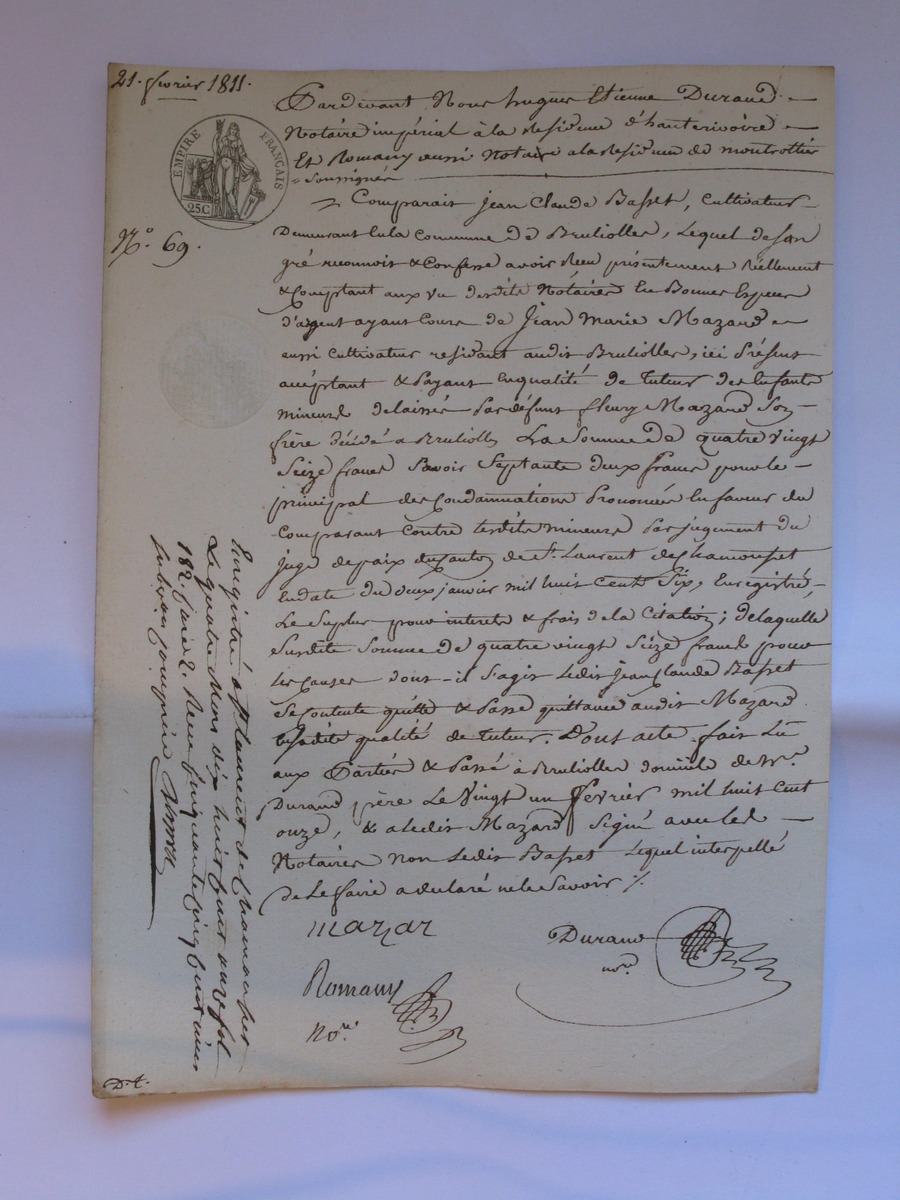 21. fevrier 1811.
EMPIRE FRANÇAIS
25C
N.o 69.
Pardevant Nous hugues Etienne Durand
Notaire impérial à la Residence d'hauterivoire
Et Romany aussi Notaire a la Residence de montrottier
soussignés
Comparait Jean Claude Basset, Cultivateur
Demeurant En la Commune de Bruliolles, Lequel de son
gré reconnoit & Confesse avoir Recu présentement Réellement
& Comptant aux vu desdits Nótaires En Bonnes Especes
d'argent ayant Cours de Jean Marie Mazard
aussi Cultivateur residant audit Brulioller, ici Présent
acceptant & Payant En qualité de Tuteur des Enfants
mineurs delaissés Par défunt fleury Mazard Son
frère décédé a Brulioller La Somme de quatre vingt
Seize francs Savoir Septante deux francs pour le
principal des Condamnations Prononcées En faveur du
Comparant Contre lesdits mineurs Par jugement du
juge de paix du Canton de St. Laurent de Chamousset
En date du deux janvier mil huit Cent Six, Enregistré,
Le Surplus pour interets & frais de la Citation; de laquelle
Susdite Somme de quatre vingt Seize francs pour
les Causes dont-il S'agit Ledit Jean Claude Basset
Se Contente quitte & Passe quittance audit Mazard
qualité de Tuteur. Dont acte fait Lu
aux Parties & Passé à Brulioller domicile de Mr.
Durand père Le Vingt un Fevrier mil huit Cent
onze, & a Ledit Mazard Signé avec Les
Notaires non Ledit Basset Lequel interpellé
de Le faire a declaré ne le Savoir ./.
mazar
Durand
no.re
Romany
No.re
Enregistré a St Laurent de Chamousset
Le quatre Mars dix huit cent onze fol
182. Case 2. Recu Cinquante Cinq Centimes
D.t.